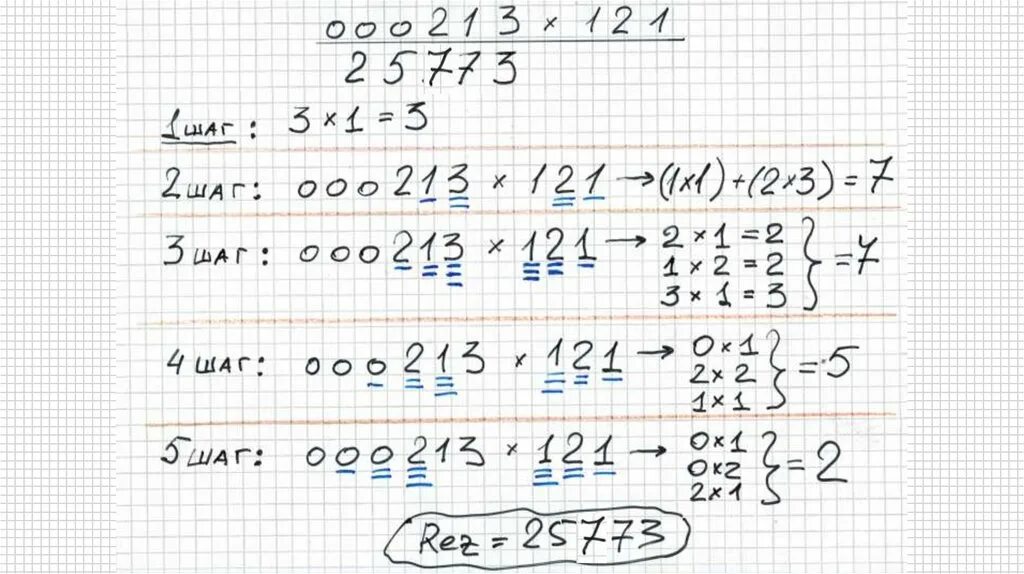 000213 × 121
25773
1шаг: 3 × 1 = 3
2шаг: 000213 × 121 → (1×1) + (2×3) = 7
3шаг: 000213 × 121 → 2 × 1 = 2
1 × 2 = 2
3 × 1 = 3
= 7
4шаг: 000213 × 121 → 0×1
2×2
1×1
= 5
5шаг: 000213 × 121 → 0×1
0×2
2×1
= 2
Rez = 25773